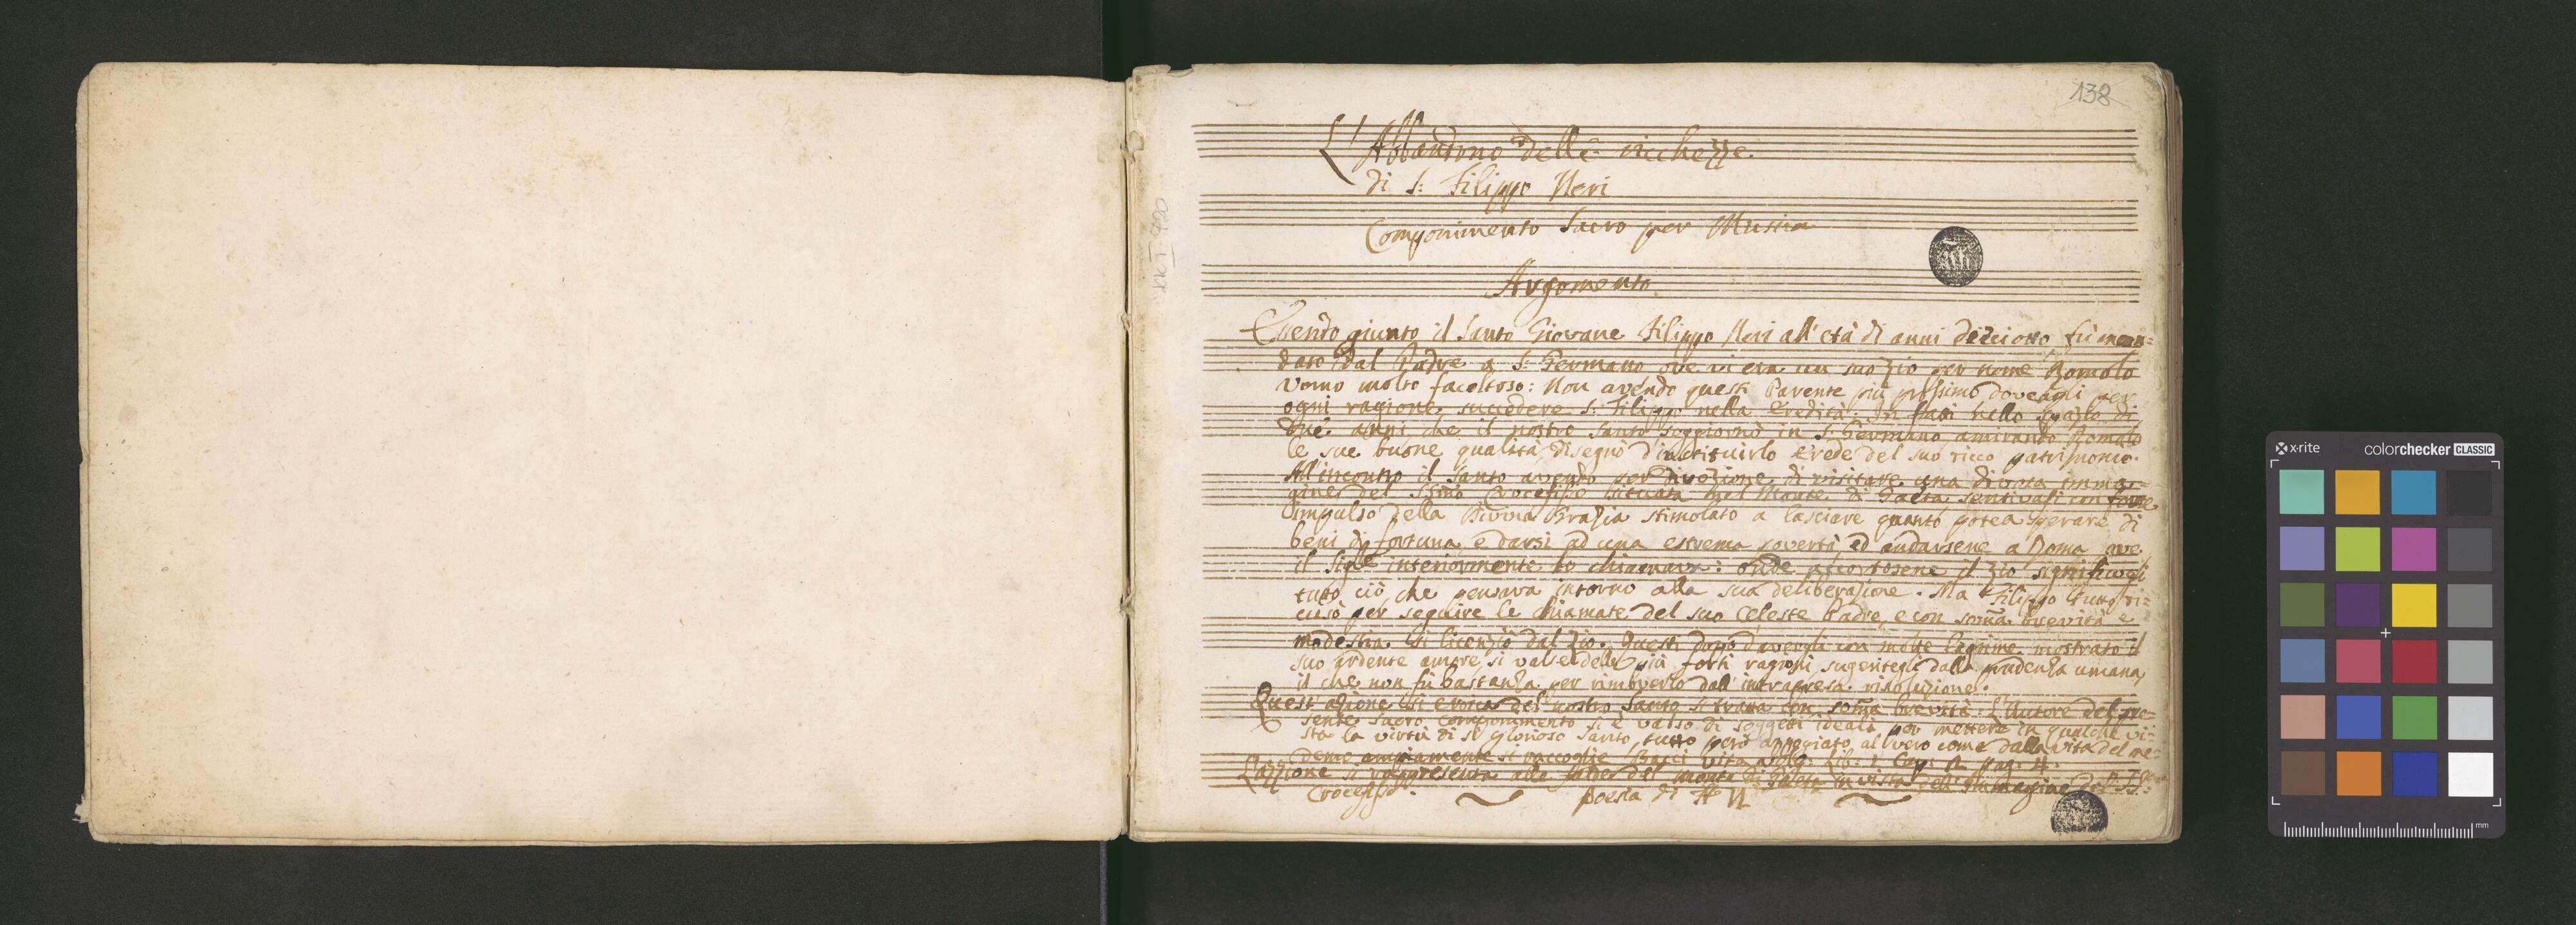 138
L'Abbandono delle ricchezze
di S: Filippo Neri
Componimento Sacro per Musica
Argomento
Essendo giunto il Santo Giovane Filippo Neri all'età di anni dieciotto fù man=
dato dal Padre a S: Germano ove vi era un suo Zio per nome Romolo
Uomo molto facoltoso: Non avendo questi Parente più prossimo doveagli per
ogni ragione succedere S: Filippo nella Eredità. In fatti nello spazio di
due anni che il nostro Santo soggiornò in S. Germano amirando Romolo
le sue buone qualità, disegnò d'instituirlo erede del suo ricco patrimonio.
All'incontro il Santo avendo per divozione di visitare una divota imma=
gine del SSmo Crocefisso situata nel Monte di Gaeta, sentivasi con forte
impulso della Divina Grazia stimolato a lasciare quanto potea sperare di
beni di fortuna, e darsi ad una estrema povertà, ed andarsene a Roma ove
il Sigre interiormente lo chiamava: onde accortosene il Zio significogli
tutto ciò che pensava intorno alla sua deliberazione. Ma Filippo tutto ri=
cusò per seguire le chiamate del suo Celeste Padre, e con soma brevità e
modestia si licenziò dal Zio. Questi dopo d'avergli con molte lagrime mostrato il
suo ardente amore si valse delle più forti ragioni sugeritegli dalla prudenza umana,
il che non fù bastanza per rimoverlo dall'intrapresa risoluzione.
Quest'azione sì eroica del nostro Santo si tratta con soma brevità. L'Autore del pre=
sente Sacro Componimento si è valso di soggetti ideali per mettere in qualche vi=
sta la virtù di sì glorioso Santo, tutto però appogiato al vero come dalla vita del me=
demo ampiamente si raccoglie Lib: 1. Cap. 2. pag. 4.
L'azzione si rappresenta alle falde del monte di Gaeta in vista dell'Immagine del SS:
Crocefisso.
Poesia di
x-rite
colorchecker CLASSIC
mm